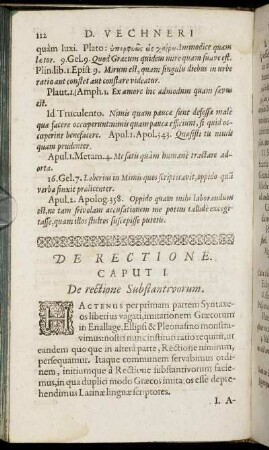 112 D. VECHNERI
quàm luxi. Plato: ὑπερφυῶς ὡς χαίρω: Immodicè quàm
lætor. 9. Gel. 9. Quod Græcum quidem mirè quàm suave est.
Plin. lib. 1. Epist. 9. Mirum est, quàm singulis diebus in urbe
ratio aut constet aut constare videatur.
Plaut. 1. Amph. 1. Ex amore hic admodum quàm sævus
est.
Id Truculento. Nimis quàm paucæ sunt defessæ malè
quæ facere occeperunt: nimis quàm paucæ efficiunt, si quid oc-
ceperint benefacere. Apul. 1. Apol. 343. Quæsisti tu nimis
quàm prudenter.
Apul. 1. Metam. 4. Me satis quàm humanè tractare ad-
orta.
16. Gel. 7. Laberius in Mimis quos scriptitavit, oppidò quà
verba finxit prolicenter.
Apul. 2. Apolog. 358. Oppidò quàm mihi laborandum
est, ne tam frivolam accusationem me potius callidè excogi-
tasse, quàm illos stultos suscepisse putetis.
DE RECTIONE.
CAPUT I.
De rectione Substantivorum.
HACTENUS per primam partem Syntaxe-
os liberius vagati, imitationem Græcorum
in Enallage, Ellipsi & Pleonasmo monstra-
vimus: nostri nunc instituti ratio requirit, ut
eundem quoque in alterâ parte, Rectione nimirum,
persequamur. Itaque communem servabimus ordi-
nem, initiumque à Rectione substantivorum facie-
mus, in qua duplici modo Græcos imitatos esse depre-
hendimus Latinæ linguæ scriptores.
I. A-